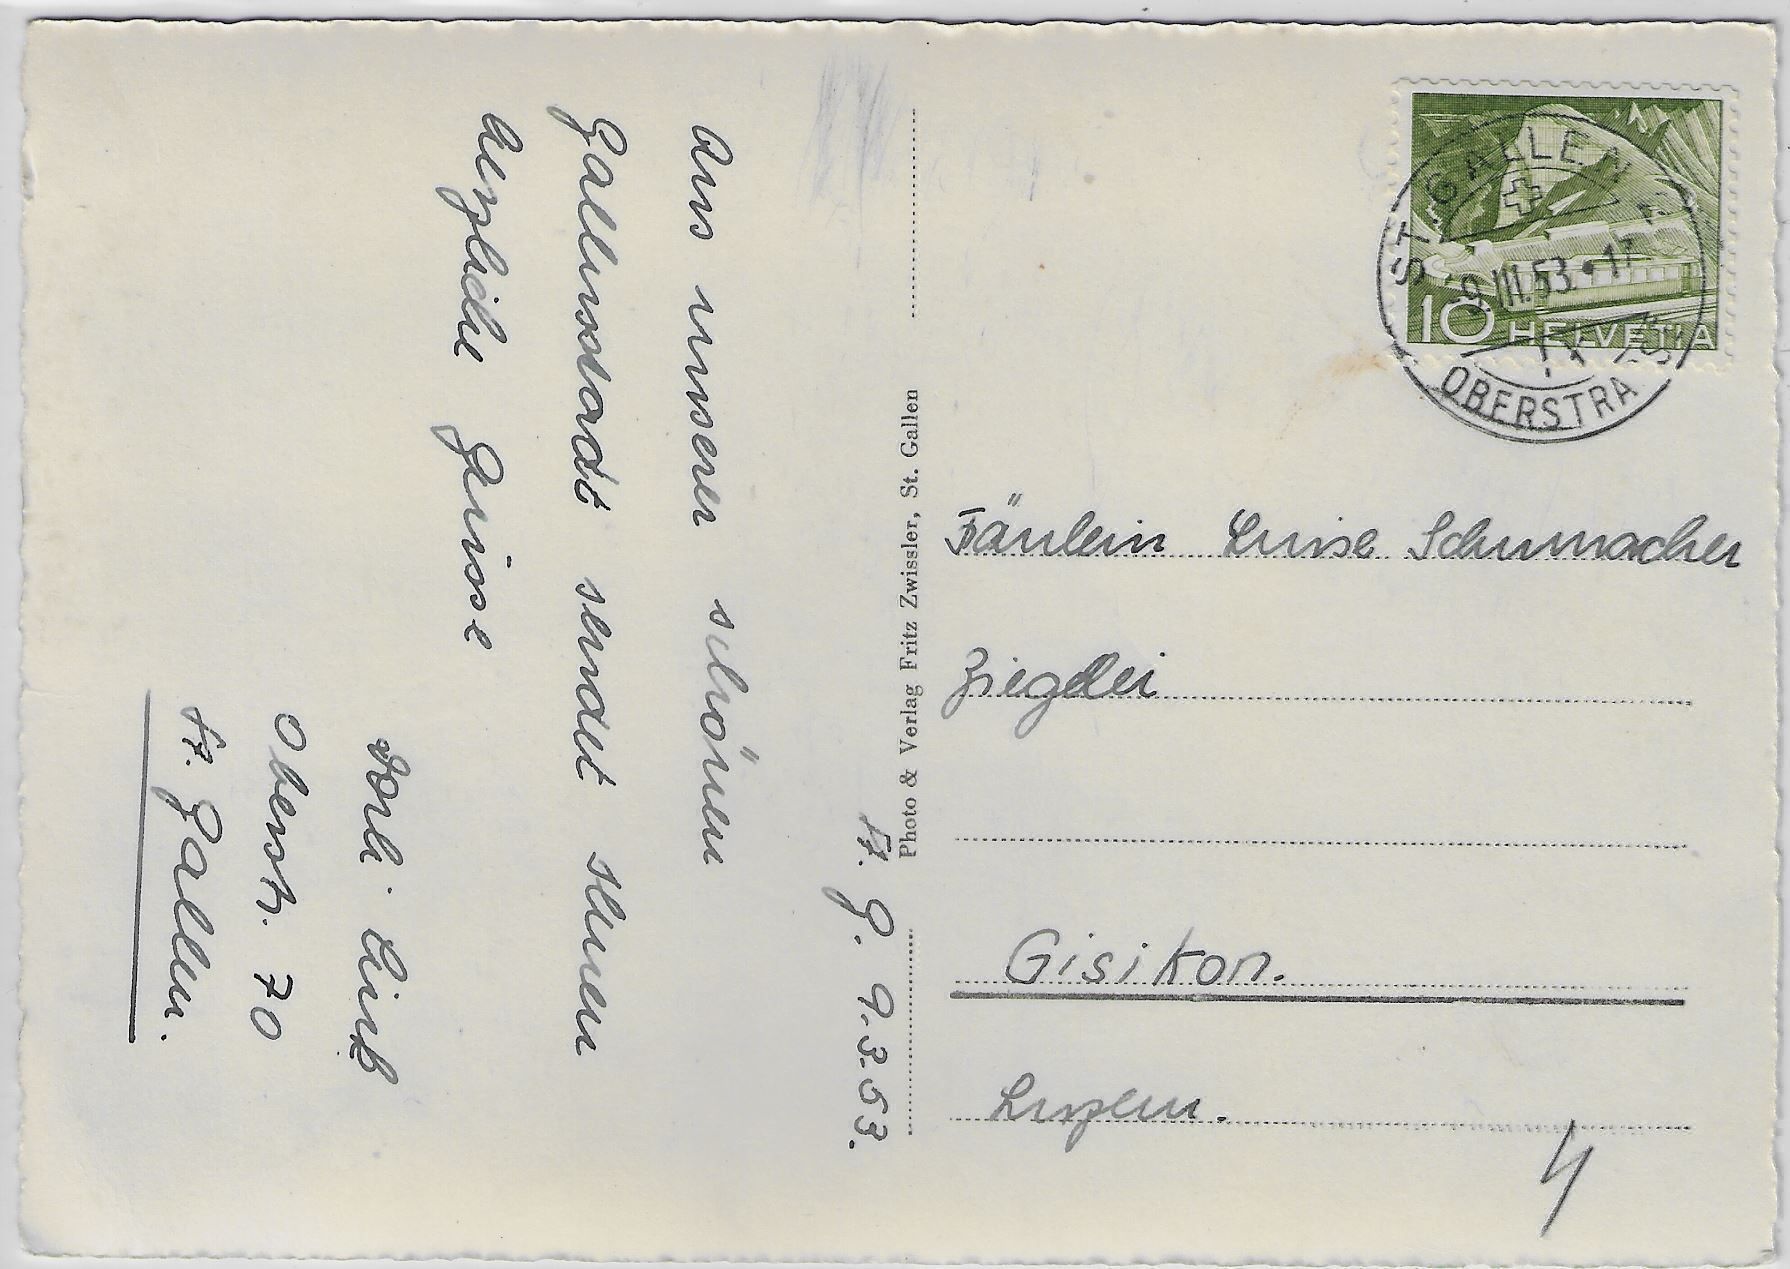 St. G. 9.3.53.
Aus unserer schönen
Gallusstadt sendet Ihnen
herzliche Grüsse
Obesrtr. 70
St. Gallen.
Photo & Verlag Fritz Zwissler, St. Gallen
ST. GALLEN
9.III.53.17
OBERSTRA
10 HELVETIA
Fäulein Luise Schumacher
Ziegelei
Gisikon.
Luzern.